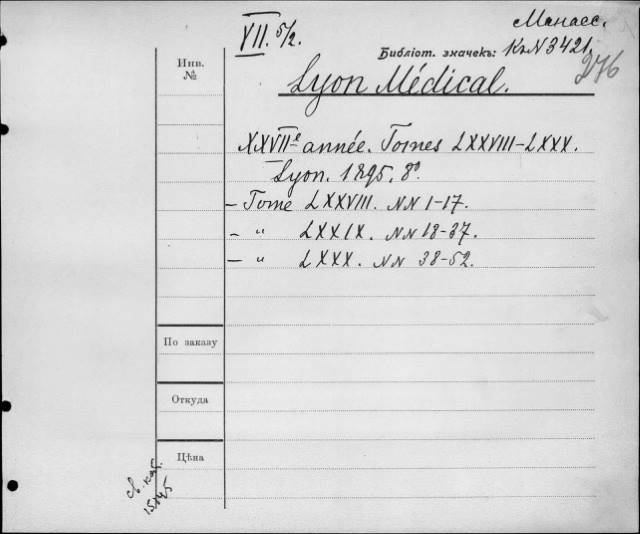 VII. 5/2.
Манаес.
Библіот. значекъ: К N 3421.
276
Инв.
№
Lyon Médical.
XXVIIe année. Tomes LXXVIII-LXXX.
Lyon. 1895. 8°
- Tome LXXVIII. NN 1-17.
- " LXXIX. NN 18-37.
- " LXXX. NN 38-52.
По заказу
Откуда
Цѣна